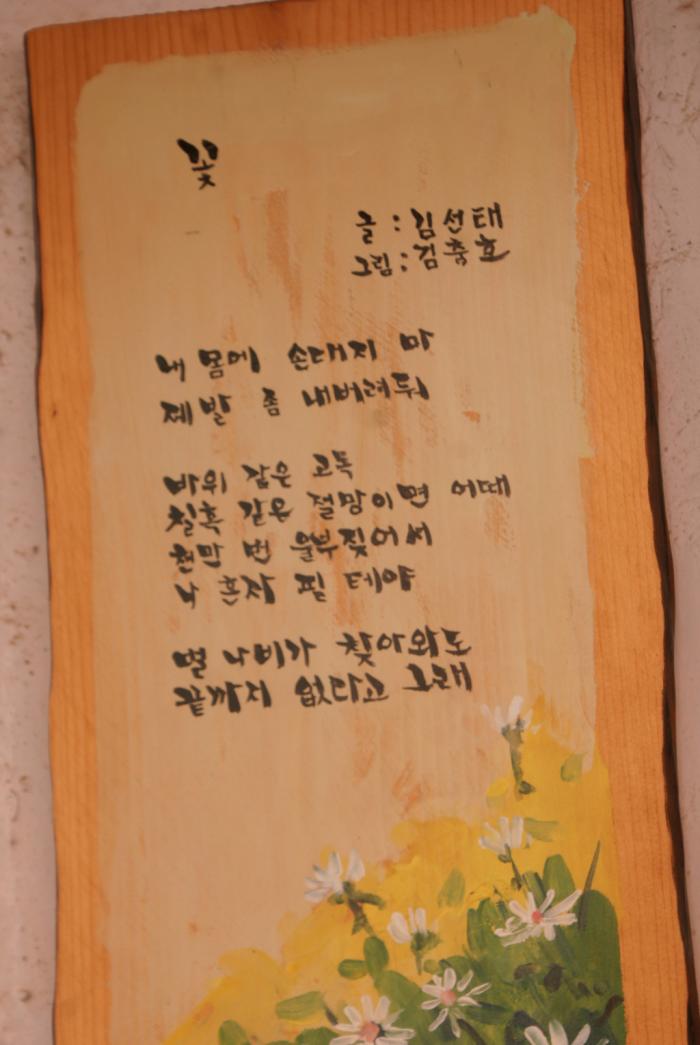 꽃
글 : 김선태
그림 : 김충호
내 몸에 손대지 마
제발 좀 내버려둬
바위 같은 고독
칠흑 같은 절망이면 어때
천만 번 울부짖어서
나 혼자 필 테야
벌 나비가 찾아와도
끝까지 없다고 그래